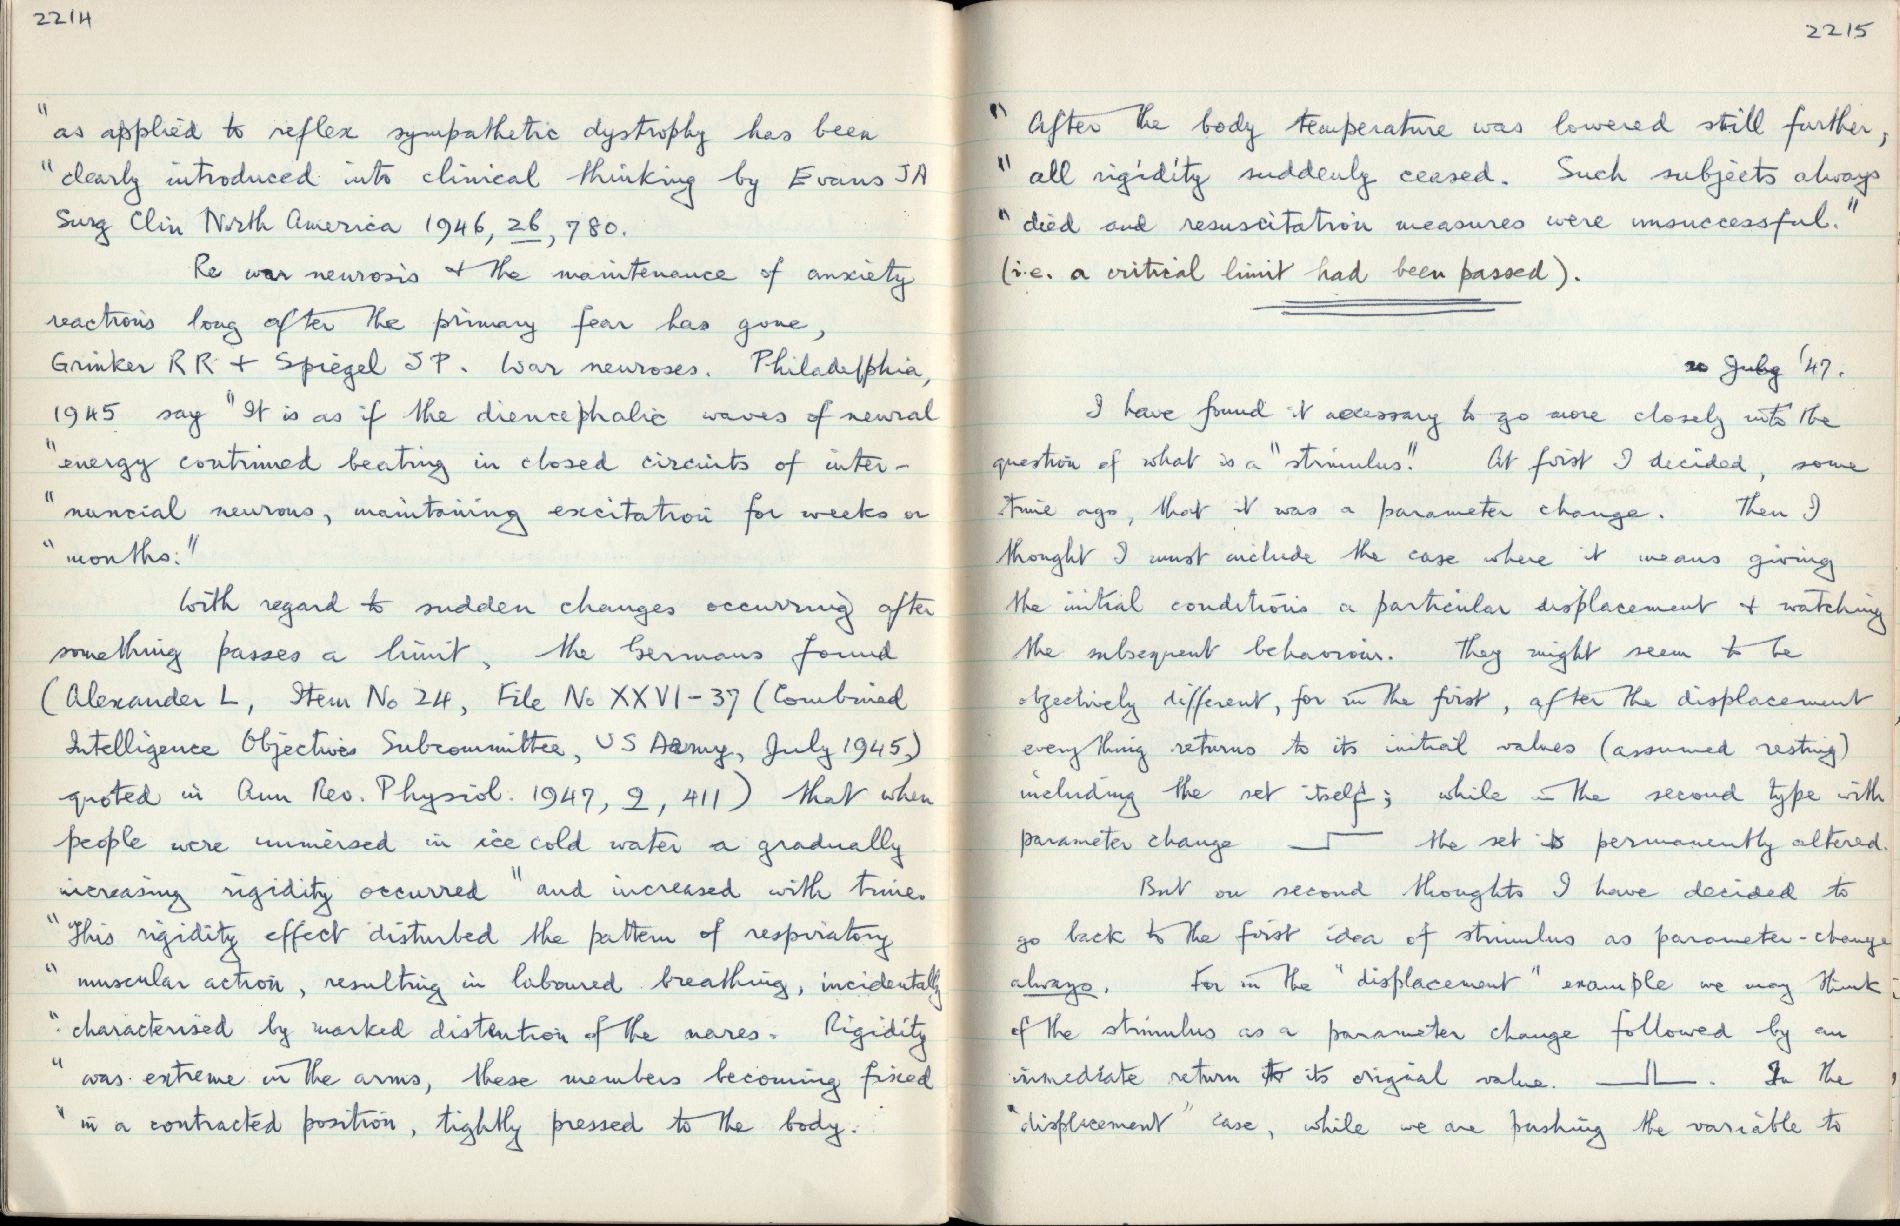 2214
"as applied to reflex sympathetic dystrophy has been
"clearly introduced into clinical thinking by Evans JA
Surg Clin North America 1946, 26, 780.
Re war neurosis & the maintenance of anxiety
reactions long after the primary fear has gone,
Grinker R R & Spiegel J P. War neuroses. Philadelphia,
1945 say "It is as if the diencephalic waves of neural
"energy continued beating in closed circuits of inter-
"nuncial neurons, maintaining excitation for weeks or
"months."
With regard to sudden changes occurring after
something passes a limit, the Germans found
(Alexander L, Item No 24, File No XXVI-37 (Combined
Intelligence Objectives Subcommittee, US Army, July 1945,)
quoted in Ann Rev. Physiol. 1947, 9, 411) that when
people were immersed in ice cold water a gradually
increasing rigidity occurred "and increased with time.
"This rigidity effect disturbed the pattern of respiratory
"muscular action, resulting in laboured breathing, incidentally
"characterised by marked distention of the nares. Rigidity
"was extreme in the arms, these members becoming fixed
"in a contracted position, tightly pressed to the body.
2215
"After the body temperature was lowered still further,
"all rigidity suddenly ceased. Such subjects always
"died and resuscitation measures were unsuccessful."
(i.e. a critical limit had been passed).
20 July '47.
I have found it necessary to go more closely into the
question of what is a "stimulus". At first I decided, some
time ago, that it was a parameter change. Then I
thought I must include the case where it means giving
the initial conditions a particular displacement & watching
the subsequent behaviour. They might seem to be
objectively different, for in the first, after the displacement
everything returns to its initial values (assumed resting)
including the set itself; while in the second type with
parameter change the set is permanently altered.
But on second thoughts I have decided to
go back to the first idea of stimulus as parameter-change
always. For in the "displacement" example we may think
of the stimulus as a parameter change followed by an
immediate return to its original value. . In the
"displacement" case, while we are pushing the variable to